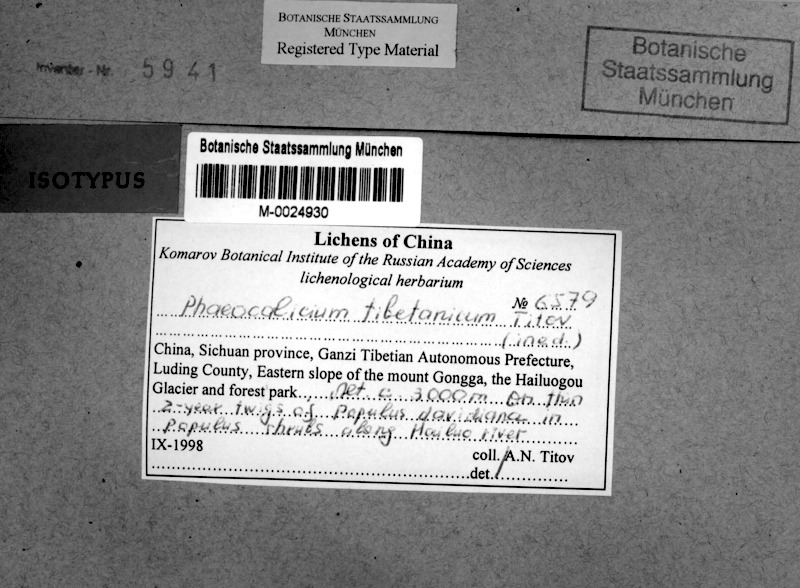 BOTANISCHE STAATSSAMMLUNG
MÜNCHEN
Registered Type Material
Inventar-Nr. 5941
Botanische
Staatssammlung
München
ISOTYPUS
Botanische Staatssammlung München
M-0024930
Lichens of China
Komarov Botanical Institute of the Russian Academy of Sciences
lichenological herbarium
№ 6579
Phaeocalicium tibetanicum Titov
(ined.)
China, Sichuan province, Ganzi Tibetian Autonomous Prefecture,
Luding County, Eastern slope of the mount Gongga, the Hailuogou
Glacier and forest park. Alt. c. 3000m on thin
2-year twigs of Populus davidiana in
Populus shrubs along Hailuo river
IX-1998
coll. A.N. Titov
det.